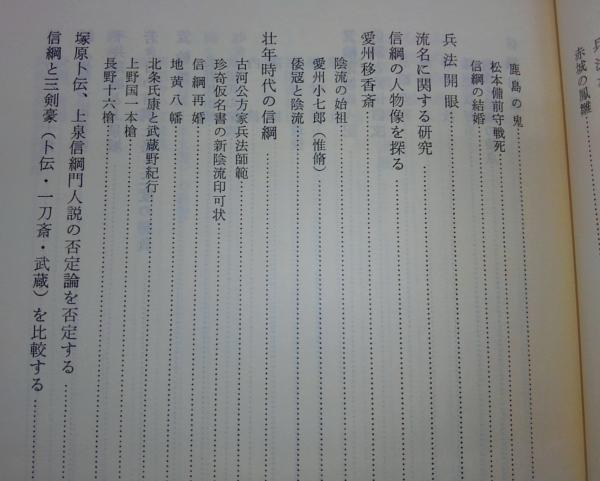 赤城の鳳雛
鹿島の鬼
松本備前守戦死
信綱の結婚
兵法開眼
流名に関する研究
信綱の人物像を探る
愛州移香斎
陰流の始祖
愛州小七郎(惟脩)
倭寇と陰流
壮年時代の信綱
古河公方家兵法師範
珍奇仮名書の新陰流印可状
信綱再婚
地黄八幡
北条氏康と武蔵野紀行
上野国一本槍
長野十六槍
塚原卜伝、上泉信綱門人説の否定論を否定する
信綱と三剣豪(卜伝・一刀斎・武蔵)を比較する